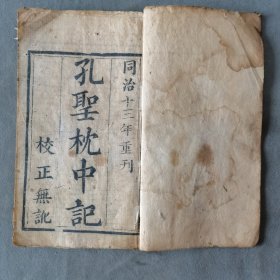 同治十三年重刊
孔聖枕中記
校正無訛